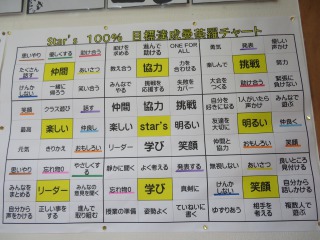 Star's 100% 目標達成曼荼羅チャート
思いやり 優しくする 助け合う 助けを求める 進んで話せる ONE FOR ALL 勇気 発表 優しい声かけ
たくさん話す 仲間 あいさつ 教え合う 協力 力を合わせる 楽しむ 挑戦 努力
けんかしない 一緒に帰ろう 笑い合う みんなでやる 挑戦を応援する 失敗カバー 大会をつくる 助け合う 緊張に負けない
笑顔 クラス遊び 話す 仲間 協力 挑戦 自分を好きになる 1人がいたら声かけ みんなで遊ぶ
最高 楽しい 仲良し 楽しい star's 明るい 友達を大切に 明るい 仲良く
元気 きりかえ おもしろい リーダー 学び 笑顔 明るい仲間 おもしろい 笑顔
思いやり 忘れ物0 やさしくする 静かに聞く よく考える 発表する 無視しない あいさつ 良いところ見付ける
みんなをまとめる リーダー みんなの意見を聞く 忘れ物0 学び 真剣に けんかしない 笑顔 自分から話しかける
自分から声をかける 正しい事をする 進んで取り組む 授業の準備 姿勢よく ていねいに書く ゆずりあう 相手を考える 複数人で遊ぶ